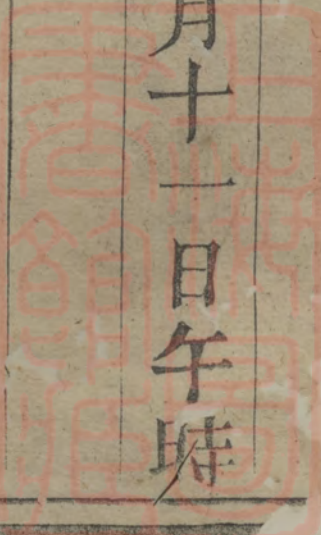 月十一日午時